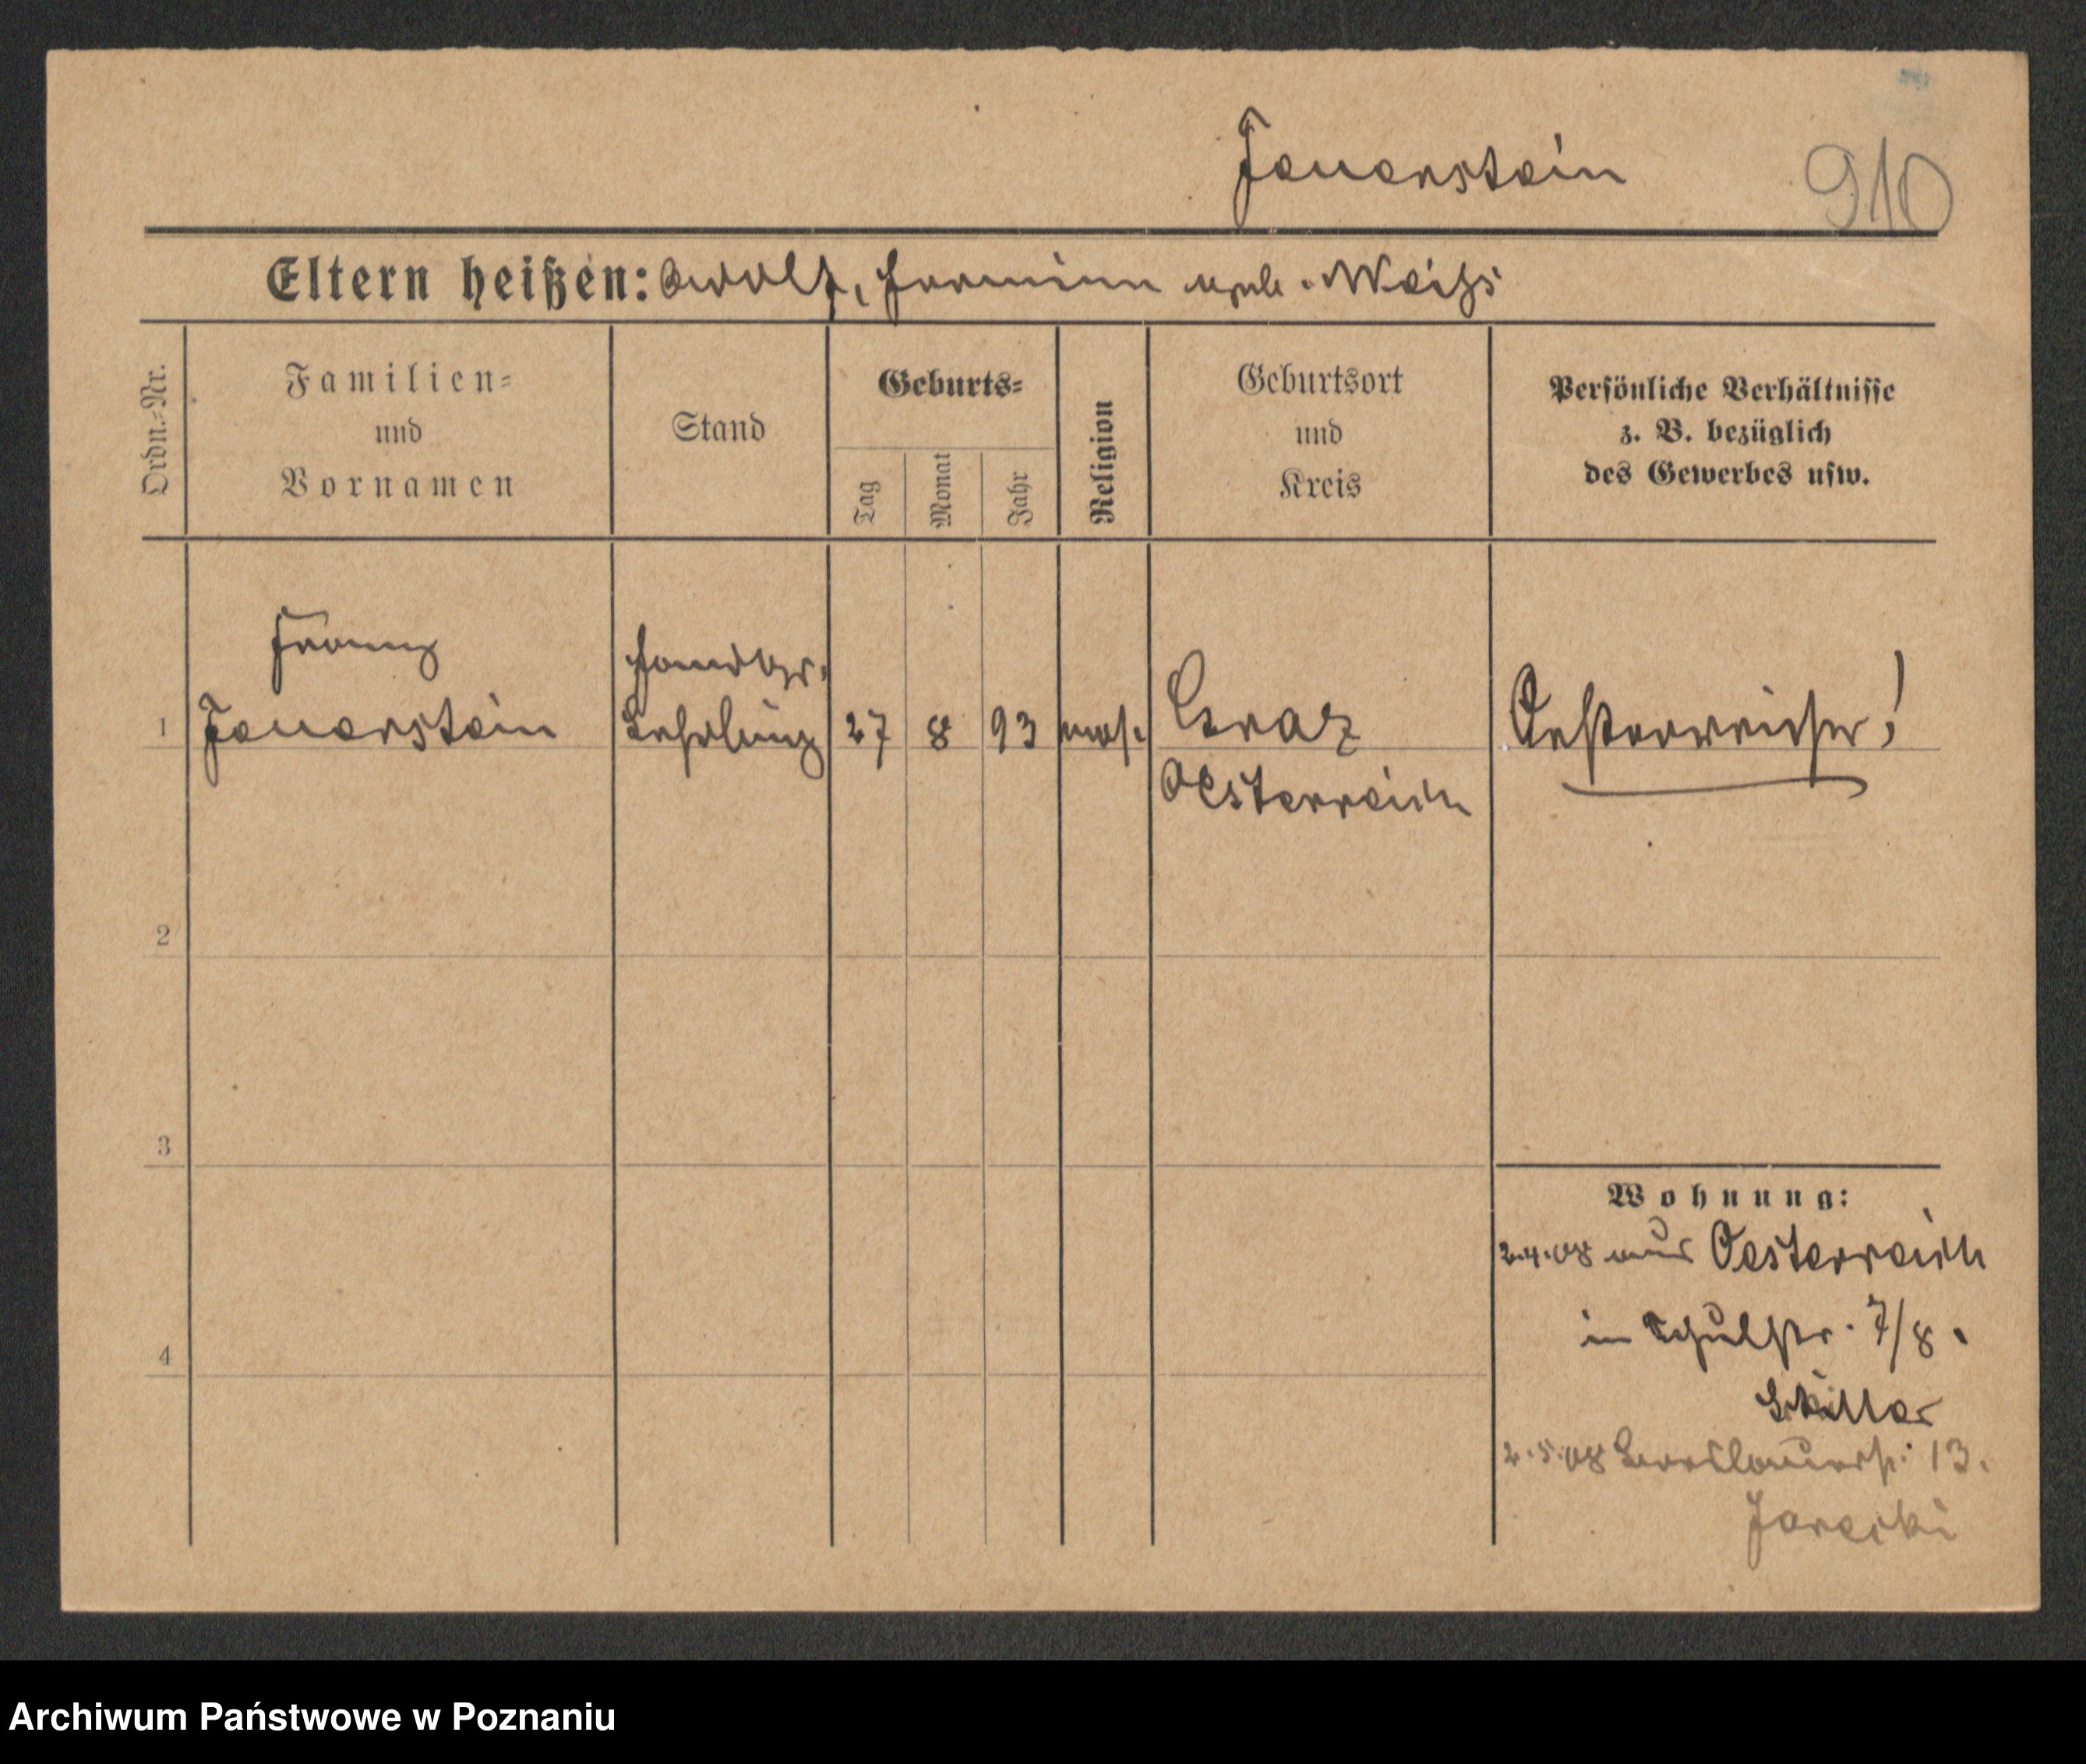 Fauerstein
910
Eltern heißen: Adolf, Hermine geb. Weihs
Ordn.-Nr.
Familien-
und
Vornamen
Stand
Geburts-
Tag
Monat
Jahr
Religion
Geburtsort
und
Kreis
Persönliche Verhältnisse
z. B. bezüglich
des Gewerbes usw.
1
Franz
Fauerstein
Handlgs.
Lehrling
27
8
93
mos.
Graz
Oesterreich
Oesterreicher!
2
3
4
Wohnung:
2.4.08 aus Oesterreich
in Schulstr. 7/8.
2.5.08 Breslauerstr. 13.
Jarecki
Archiwum Państwowe w Poznaniu